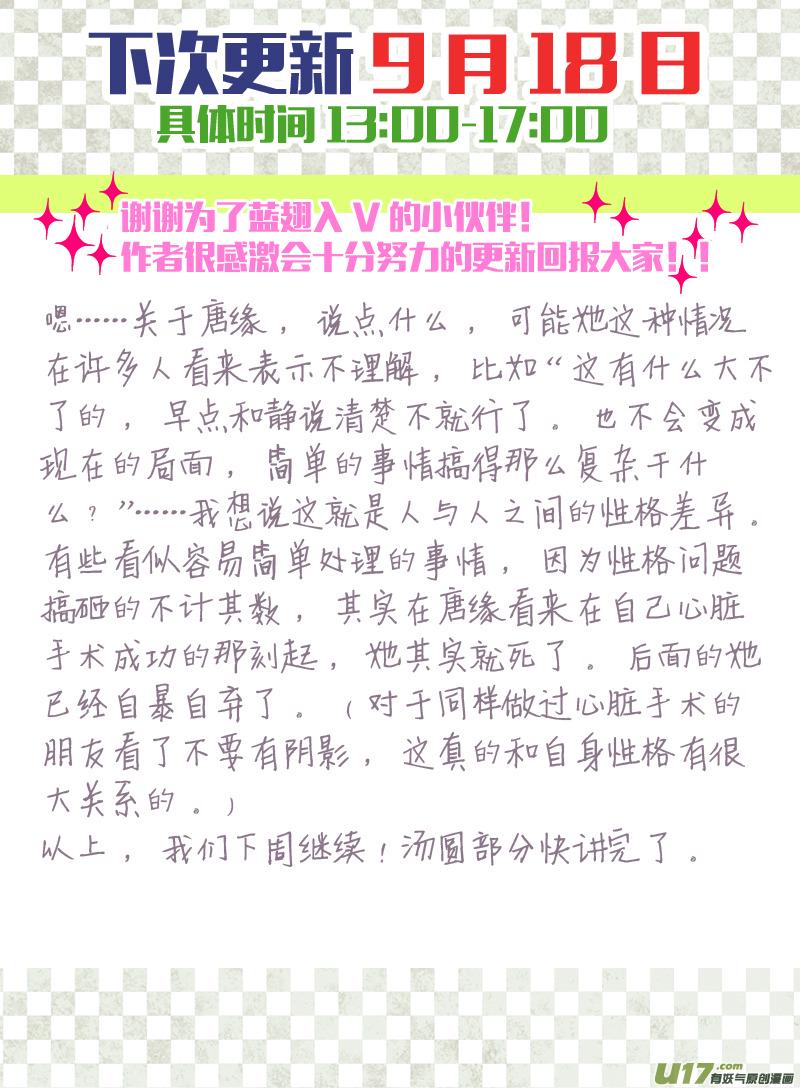 下次更新 9月18日
具体时间 13:00-17:00
谢谢为了蓝翅入 V 的小伙伴！
作者很感激会十分努力的更新回报大家！！
嗯……关于唐缘，说点什么，可能她这种情况
在许多人看来表示不理解，比如“这有什么大不
了的，早点和静说清楚不就行了。也不会变成
现在的局面，简单的事情搞得那么复杂干什
么？”……我想说这就是人与人之间的性格差异。
有些看似容易简单处理的事情，因为性格问题
搞砸的不计其数，其实在唐缘看来在自己心脏
手术成功的那刻起，她其实就死了。后面的她
已经自暴自弃了。（对于同样做过心脏手术的
朋友看了不要有阴影，这真的和自身性格有很
大关系的。）
以上，我们下周继续！汤圆部分快讲完了。
U17.com
有妖气原创漫画